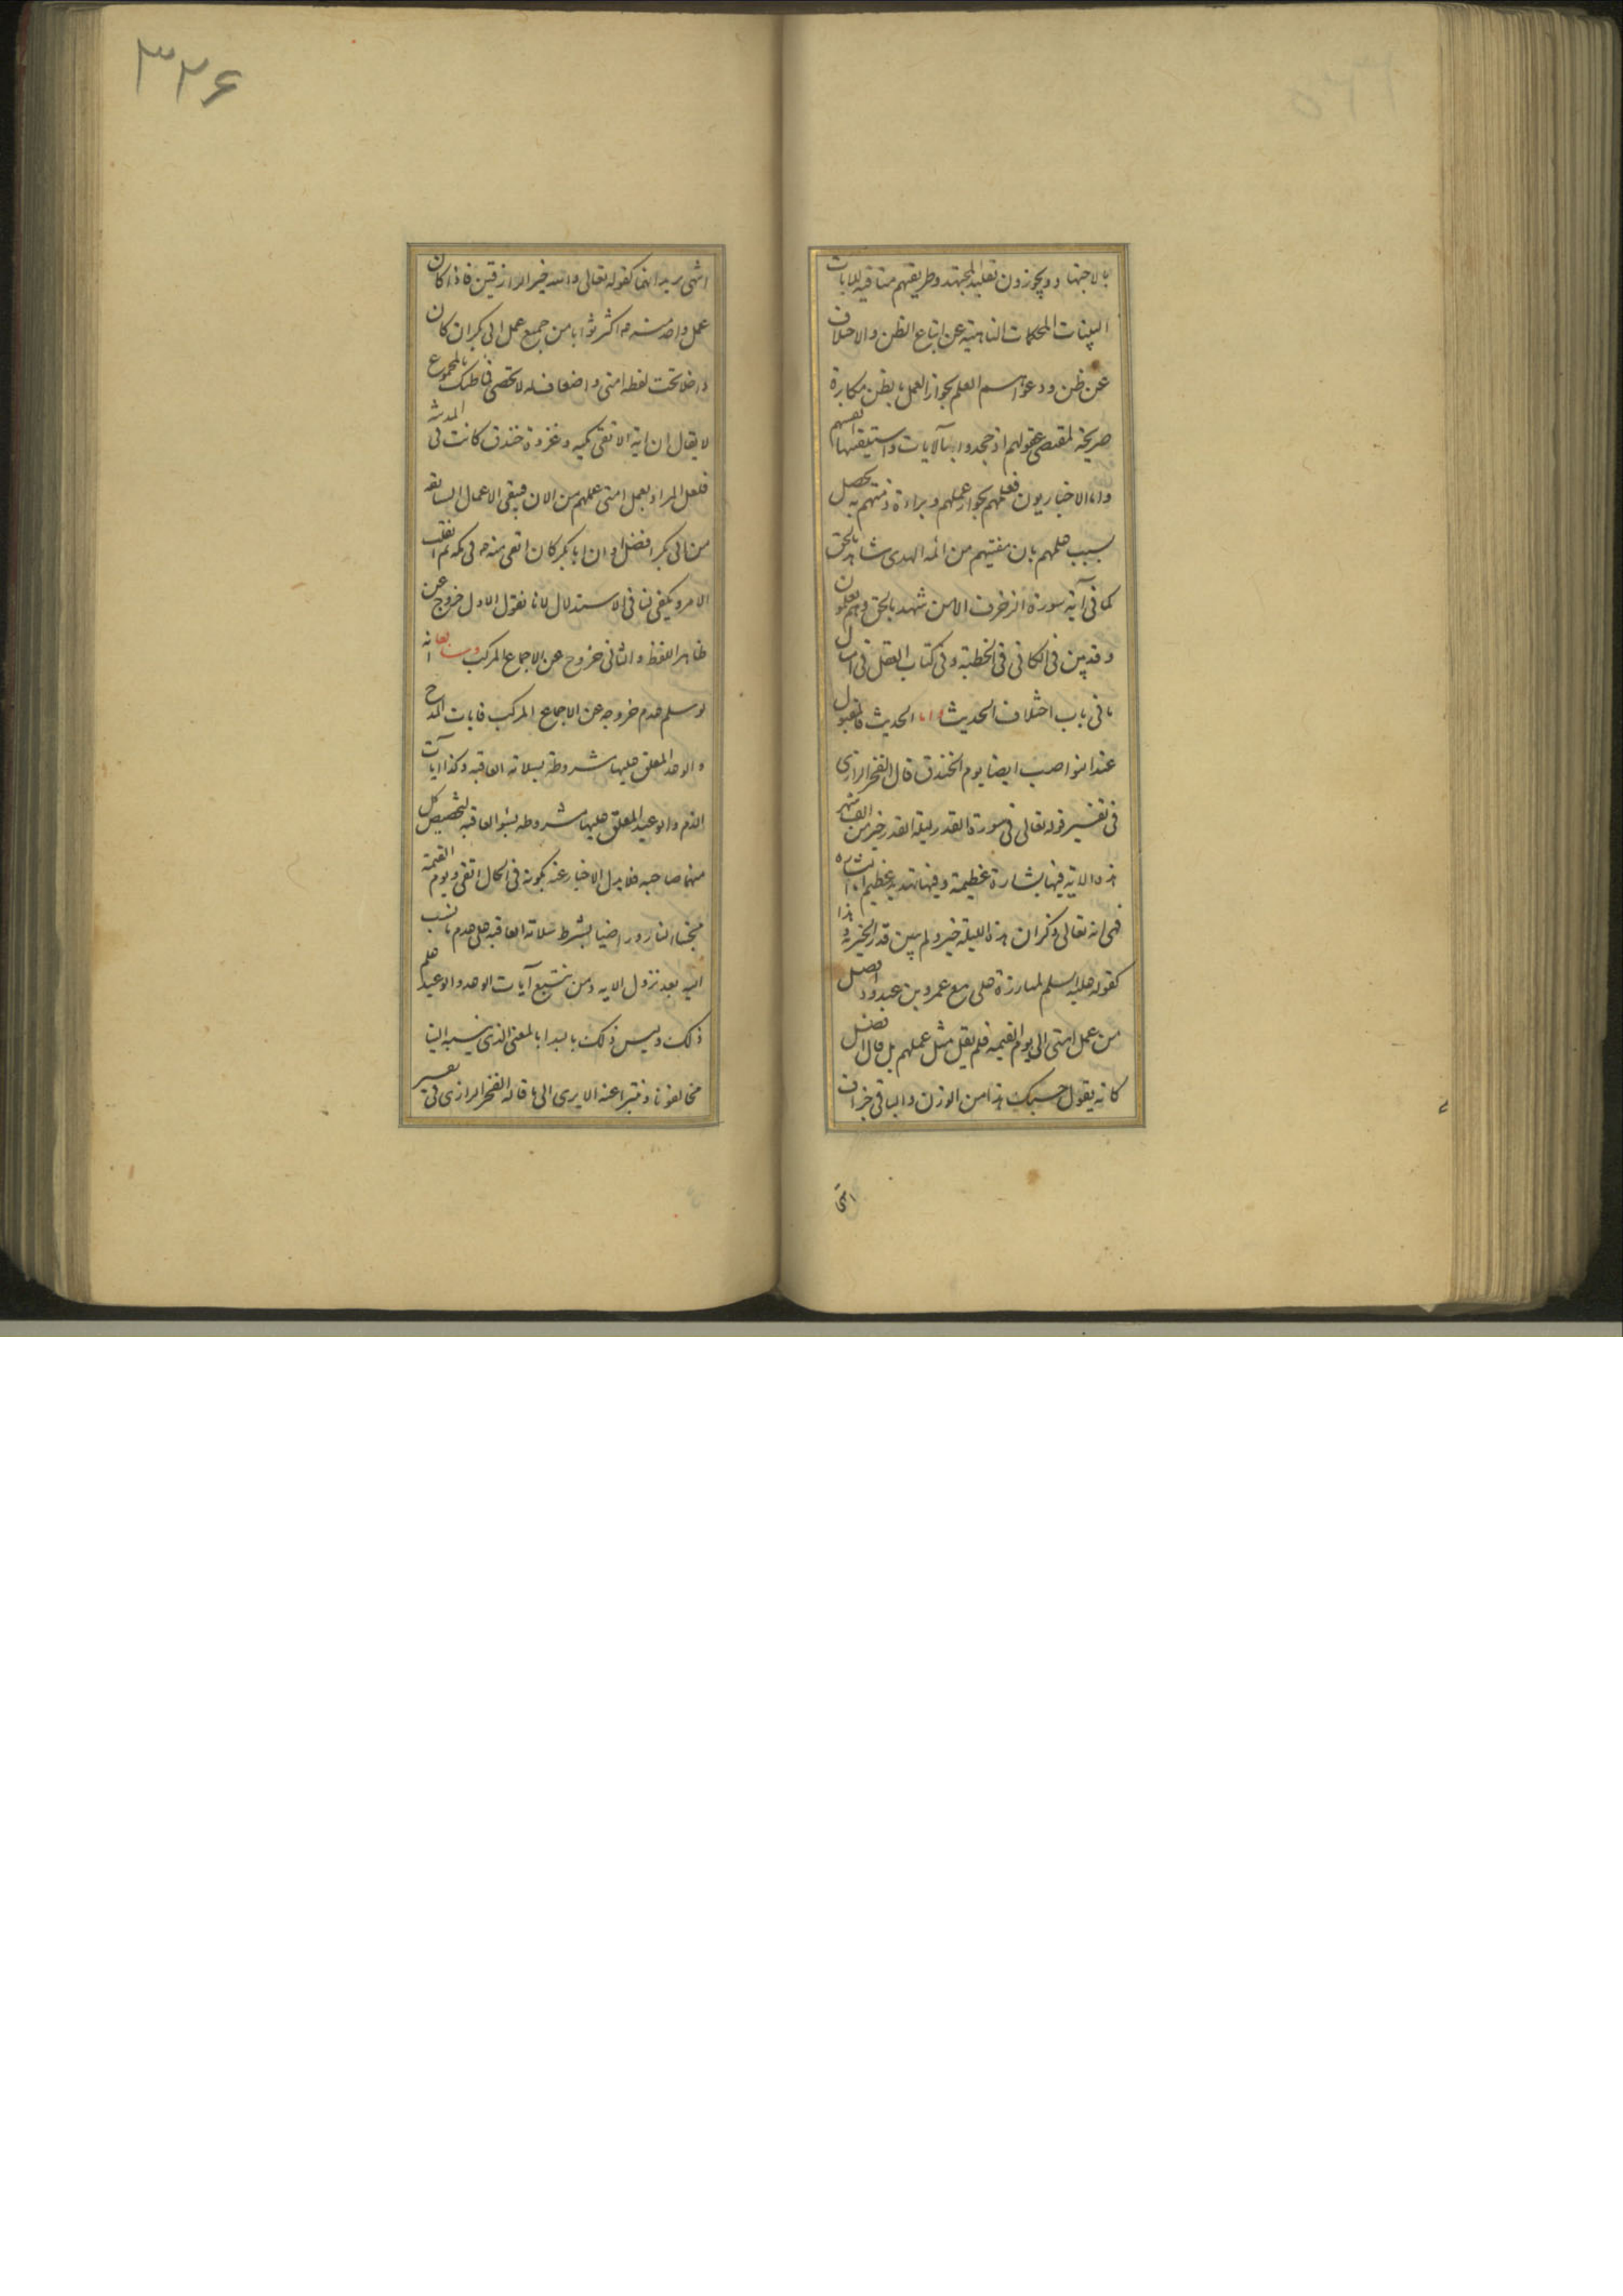 بالاجتهاد ويجوزون تقليد المجتهد وطريقتهم منافيه للايات
البينات المحكمات الناهية عن اتباع الظن والاختلاف
عن ظن ودعواهم العلم بجواز العمل بظن مكابرة
صريحة لمقتضى عقولهم اذ جحدوا بالآيات واستيقنتها انفسهم
واما الاخباريون فعلمهم بجواز عملهم وبراءة ذمتهم به يحصل
بسبب علمهم بان مفتيهم من ائمه الهدى شاهد بالحق
كما في آية سورة الزخرف الا من شهد بالحق وهم يعلمون
وقد بين في الكافي في الخطبة وفي كتاب العقل في
في باب اختلاف الحديث واما الحديث المقبول
عند النواصب ايضا يوم الخندق قال الفخر الرازي
في تفسير قوله تعالى في سورة القدر ليلة القدر خير من الف شهر
هذه الاية فيها بشارة عظيمة وفيها تهديد عظيم اما البشارة
فهي انه تعالى ذكر ان هذه الليلة خير ولم يبين قدر الخيرية وهذا
كقوله عليه السلم لمبارزة علي مع عمرو بن عبدود افضل
من عمل امتي الى يوم القيمه فلم يقل مثل عملهم بل قال افضل
كانه يقول حسبك هذا من الوزن والباقي جزاف
انتهى
٣٢۶
انتهى يريد انهما كقوله تعالى والله خير الرازقين فاذا كان
عمل واحد منه اكثر ثوابا من جميع عمل ابي بكر ان كان
داخلا تحت لفظه امتي واضعافه لا تحصى فما ظنك بالمجموع
لا يقال ان اية الاتقى مكيه وغزوة خندق كانت في المدينة
فلعل المراد بعمل امتي عملهم من الان فيبقى الاعمال السابقه
من ابي بكر افضل او ان ابا بكر كان اتقى منه في مكه ثم انقلب
الامر ويكفي لنا في الاستدلال لانا نقول الاول خروج عن
ظاهر اللفظ والثاني خروج عن الاجماع المركب انه
لو سلم عدم خروجه عن الاجماع المركب فايات المدح
والوعد المعلق عليها مشروطة بسلامة العاقبه وكذا ايات
الذم والوعيد المعلق عليها مشروطه بسوء العاقبه لتخصيص كل
منهما صاحبه فلا يدل الاخبار عنه بكونه في الحال اتقى ويوم القيمة
مجنبا النار وراضيا بشرط سلامة العاقبه على عدم ما نسب
اليه بعد نزول الايه ومن تتبع آيات الوعد والوعيد علم
ذلك وليس ذلك بالبدا بالمعنى الذي ينسبه الينا
مخالفونا ونتبرا عنه الا يرى الى ما قاله الفخر الرازي في تفسير